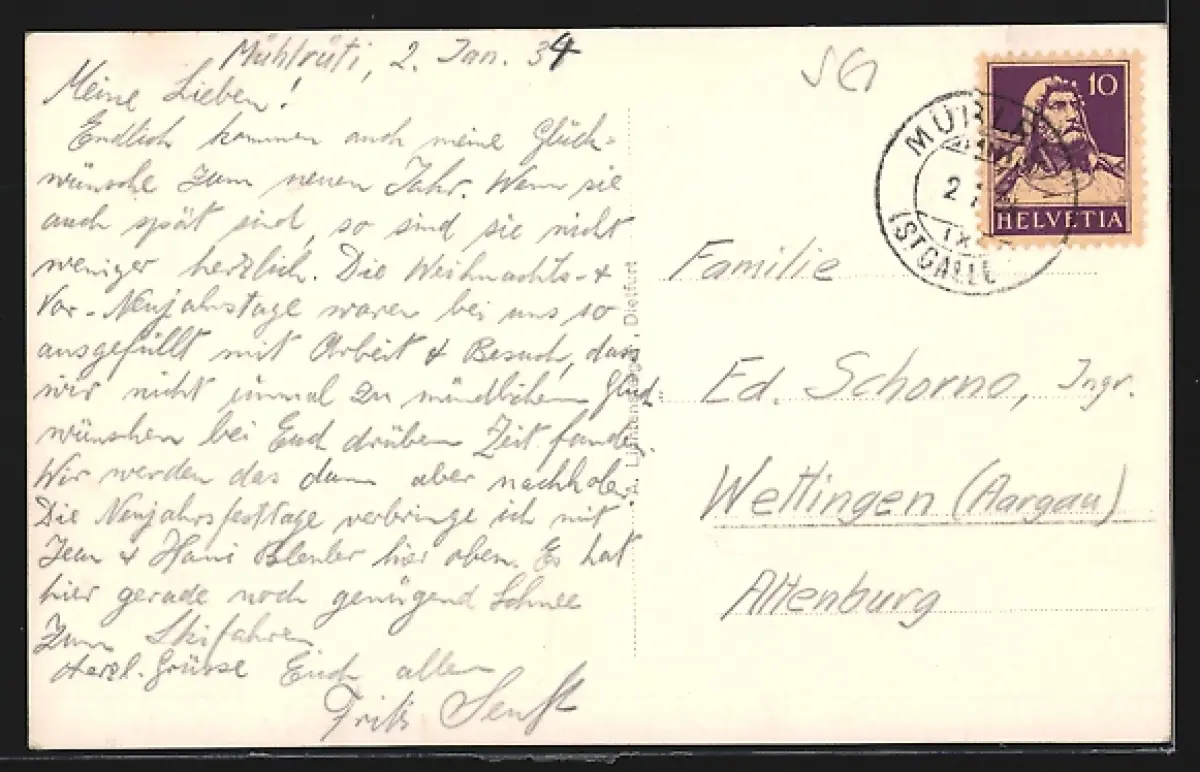 Mühlrüti, 2. Jan. 34
Meine Lieben!
Endlich kommen auch meine Glück-
wünsche zum neuen Jahr. Wenn sie
auch spät sind, so sind sie nicht
weniger herzlich. Die Weihnachts- &
Vor-Neujahrstage waren bei uns so
ausgefüllt mit Arbeit & Besuch, dass
wir nicht einmal zu mündlichen Glück-
wünschen bei Euch drüben Zeit fanden.
Wir werden das dann aber nachholen.
Die Neujahrsfesttage verbringe ich mit
& Hans hier oben. Es hat
hier gerade noch genügend Schnee
zum Skifahren.
Herzl. Grüsse Euch allen
Fritz Senft
SG
10
HELVETIA
2
Familie
Ed. Schorno, Ingr.
Wettingen (Aargau)
Altenburg
Dietfurt